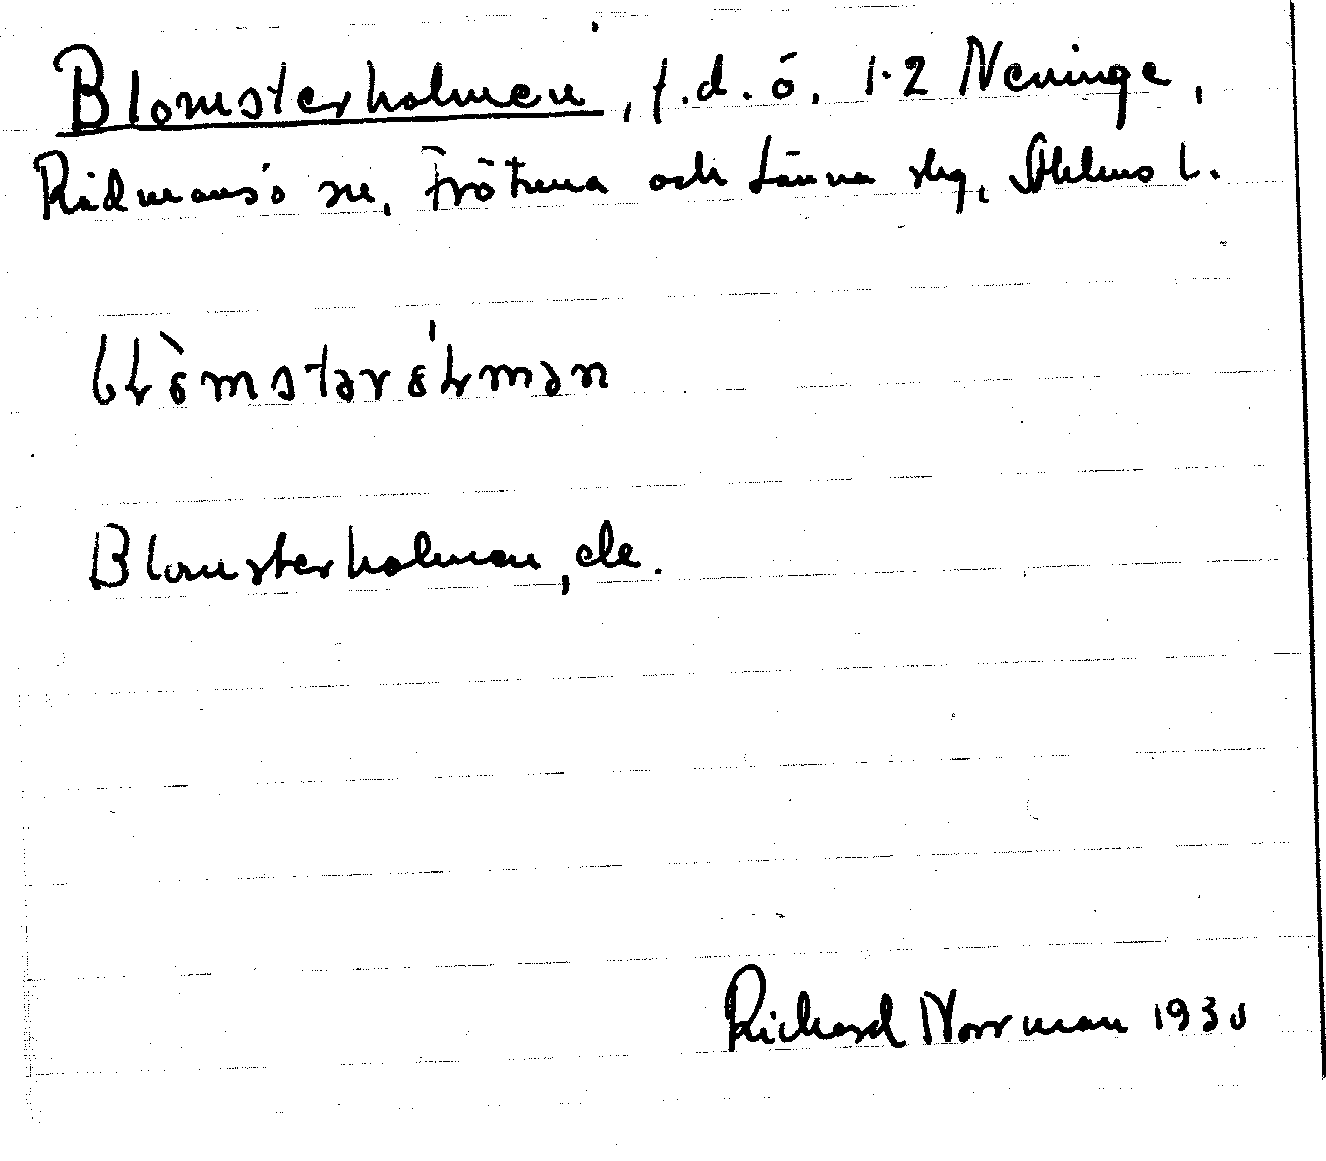 Blomsterholmen, f.d. ö, 1.2 Neninge,
Rådmansö sn, Frötuna och Länna skg, Sthlms l.
Blomsterholmen, ele.
Richard Norrman 1930